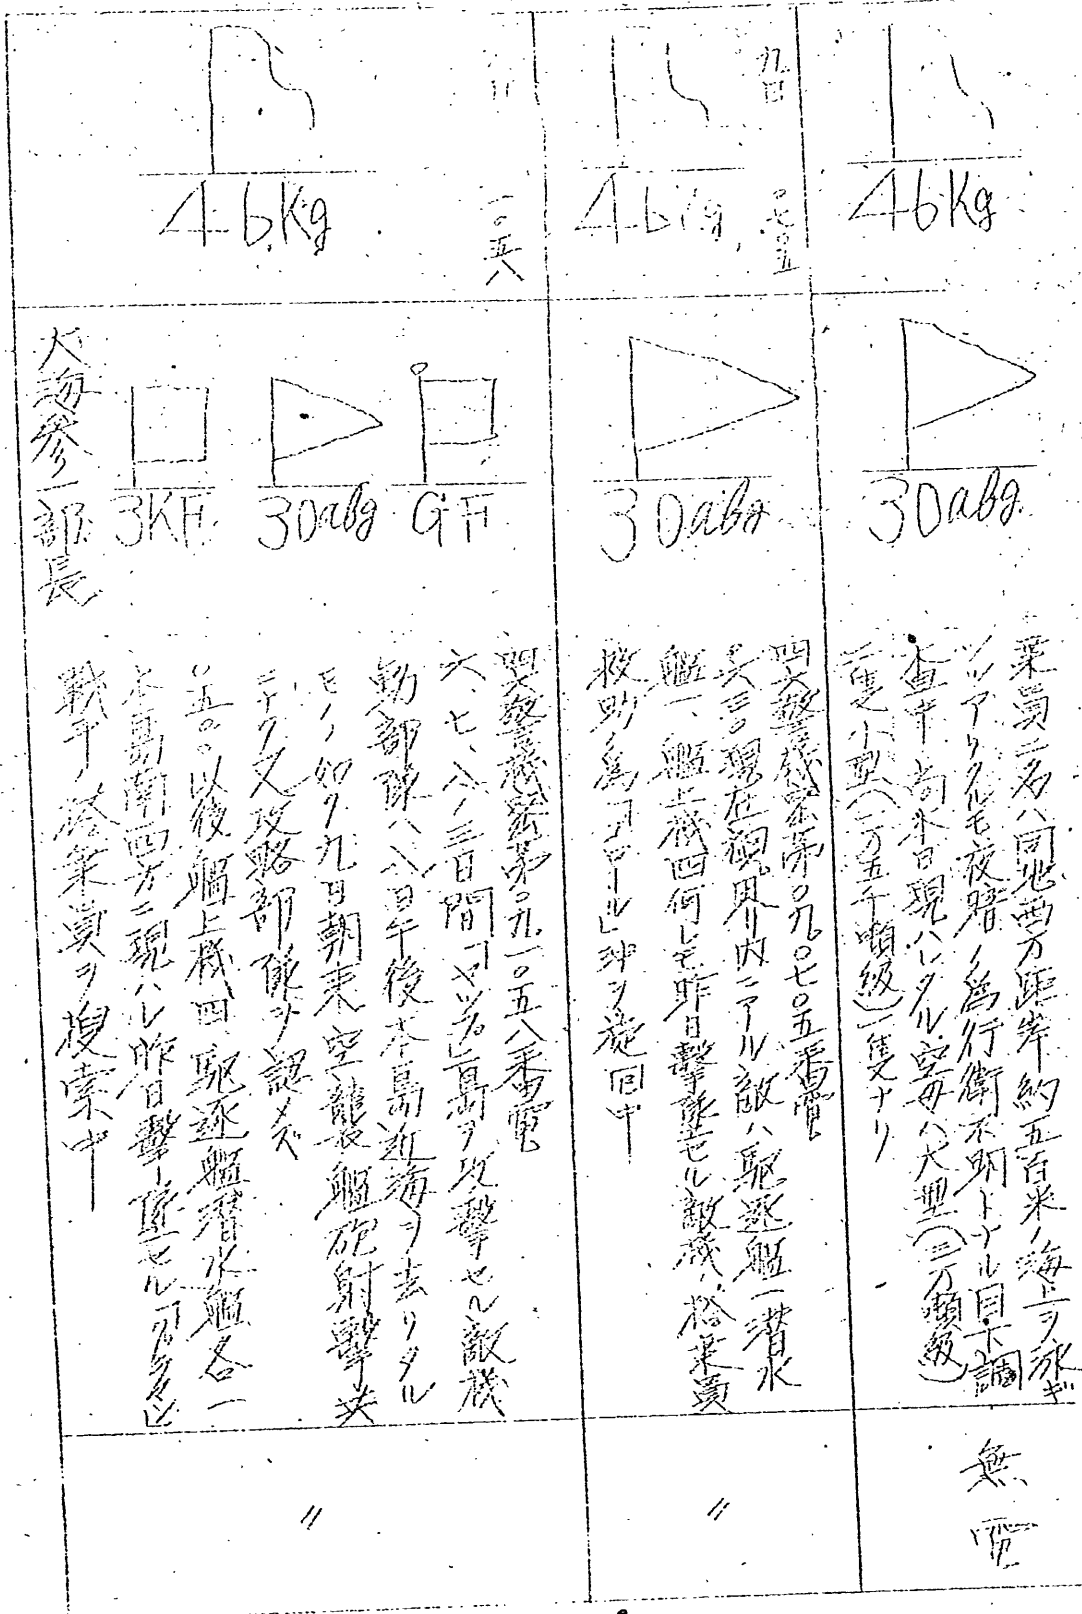 46Kg
30abg
乗員二名ハ同地西方距岸約五百米ノ海上ヲ泳ギ
ツツアリタルモ夜暗ノ為行衛不明トナル目下調
査中尚本日現ハレタル空母ハ大型(三万噸級)
二隻小型(一万五千噸級)一隻ナリ
無電
九日
〇七〇五
46Kg
30abg
四六警機密第〇九〇七〇五番電
〇六三〇現在視界内ニアル敵ハ駆逐艦一潜水
艦一、艦上機四何レモ昨日撃墜セル敵機ノ搭乗員
救助ノ為「コロール」沖ヲ旋回中
〃
〃
一〇五八
46Kg
GF
30abg
3KF
大海参一部長
四六警機密第〇九一〇五八番電
六、七、八ノ三日間「ヤップ」島ヲ攻撃セル敵機
動部隊ハ八日午後本島近海ヲ去リタル
モノノ如ク九日朝来空襲艦砲射撃共
ニナク又攻略部隊ヲ認メズ
〇五〇〇以後艦上機四駆逐艦潜水艦各一
本島南西方ニ現ハレ昨日撃墜セル
戦斗ノ搭乗員ヲ捜索中
〃